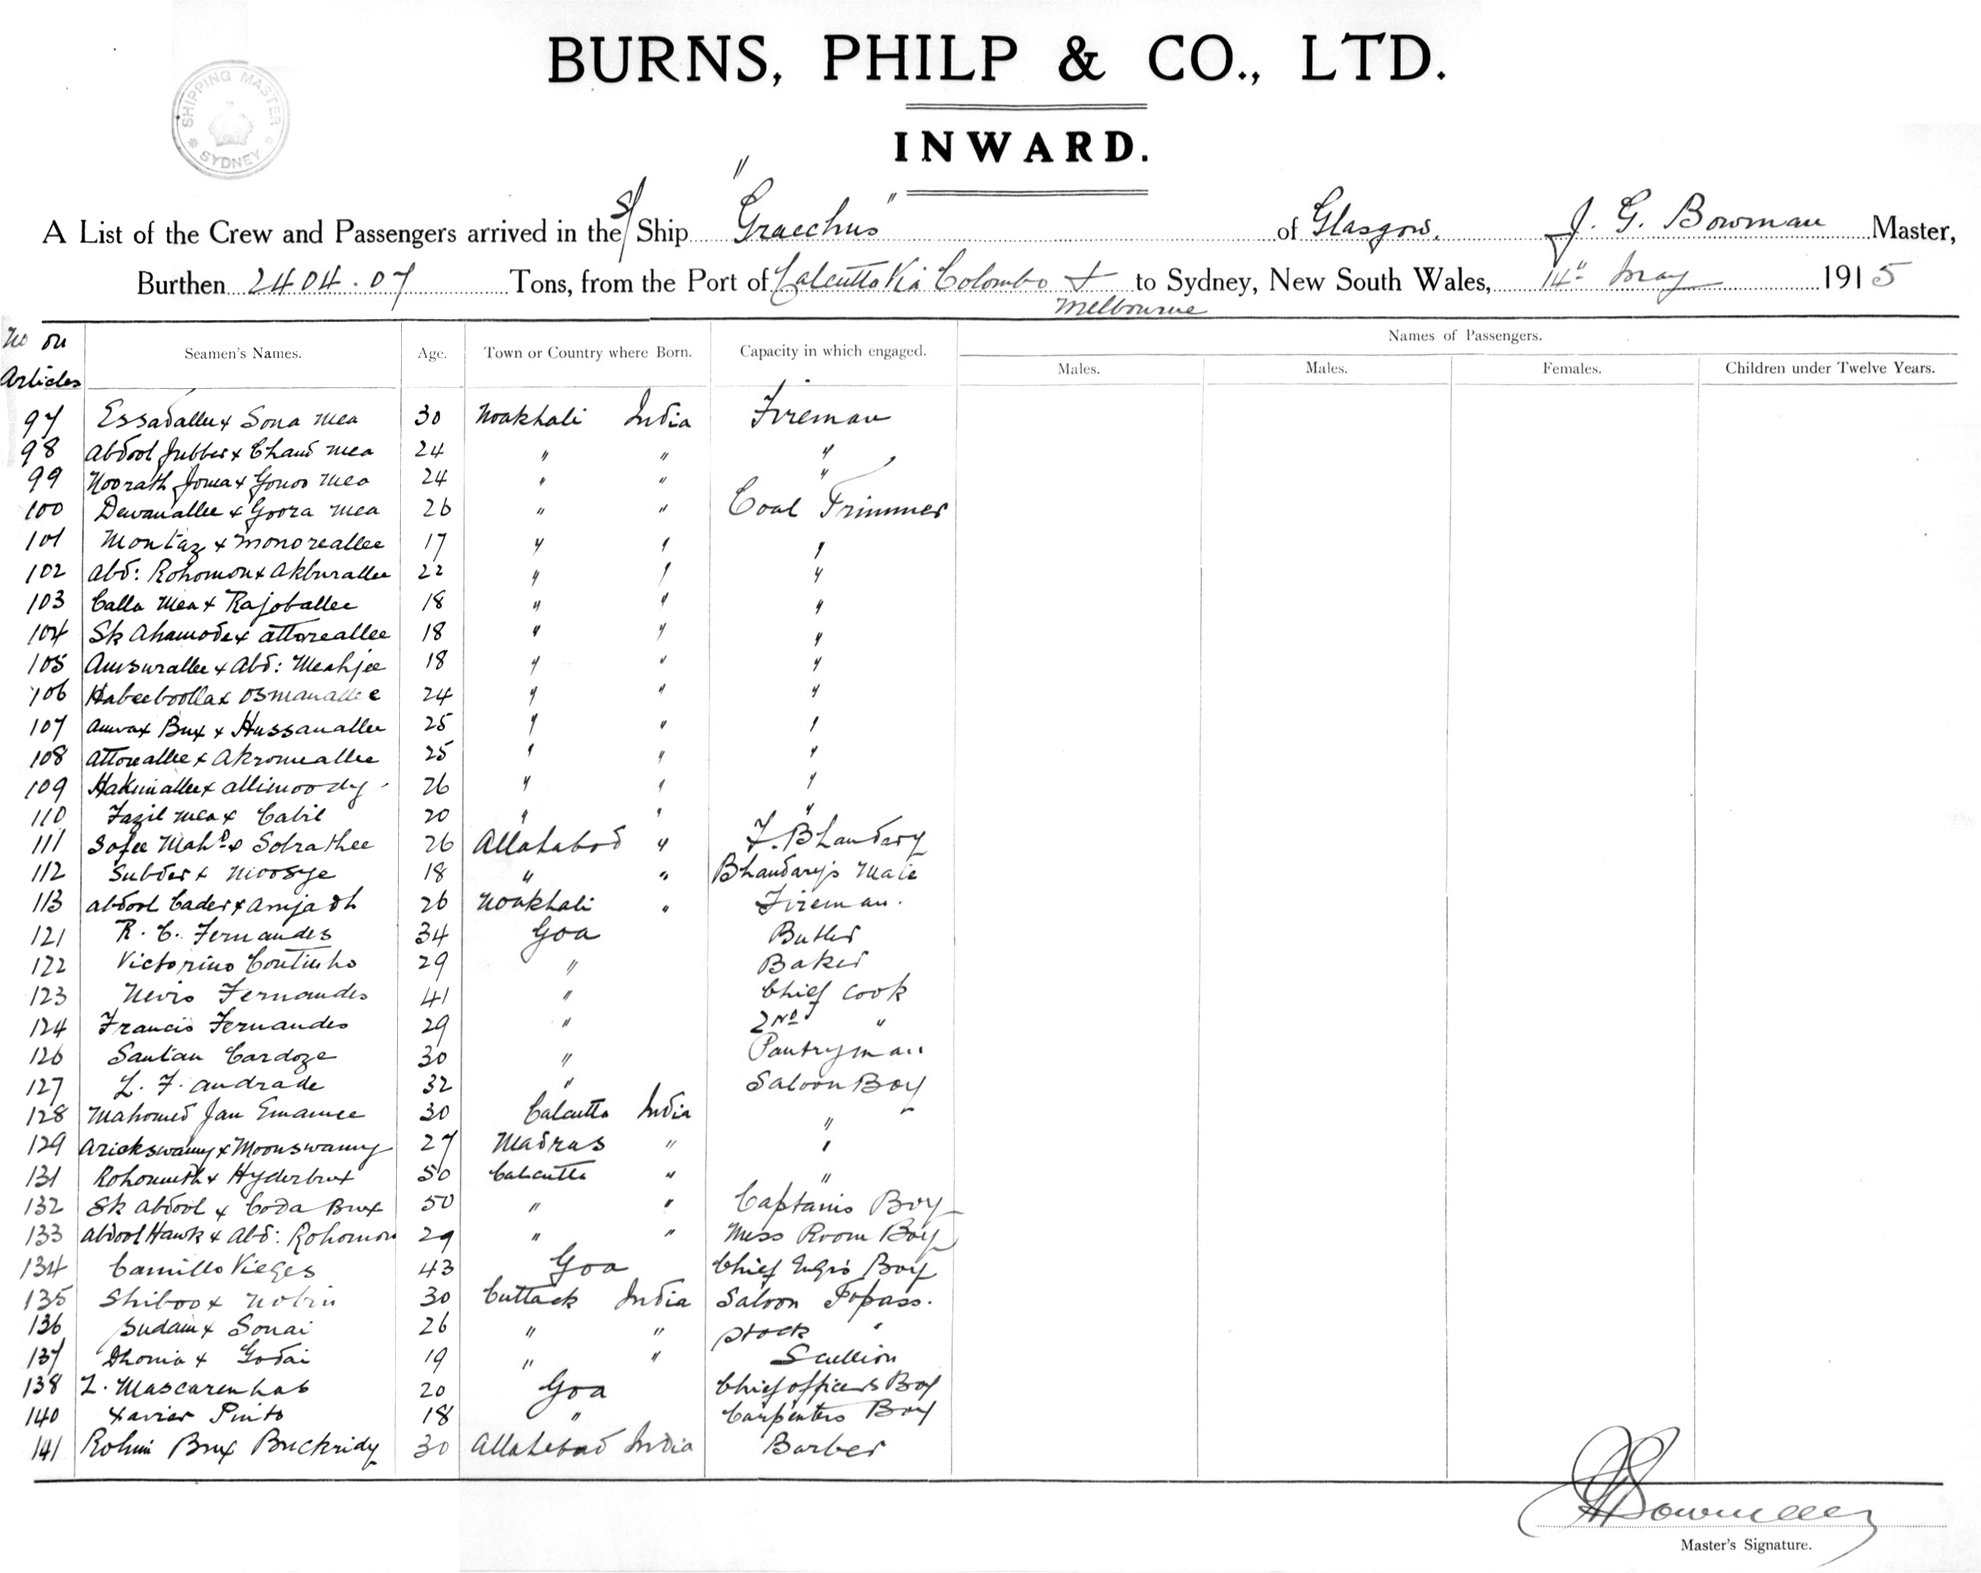 BURNS, PHILP & CO., LTD.
SHIPPING MASTER
SYDNEY
INWARD.
A List of the Crew and Passengers arrived in the S/ Ship "Gracchus" of Glasgow, J. G. Bowman Master,
Burthen 2404.07 Tons, from the Port of Calcutta Via Colombo & Melbourne to Sydney, New South Wales, 14th May 1915
No on Articles Seamen's Names. Age. Town or Country where Born. Capacity in which engaged. Names of Passengers.
Males. Males. Females. Children under Twelve Years.
97 Essadallee x Sona Mea 30 Noakhali India Fireman
98 Abdool Jubber x Chand Mea 24 " " "
99 Noorath Joma x Gonoo Mea 24 " " "
100 Dewanallee x Goora Mea 26 " " Coal Trimmer
101 Montaz x Monoreallee 17 " " "
102 Abd: Rohomon x Akburallee 22 " " "
103 Calla Mea x Rajoballee 18 " " "
104 Sk Ahamode x Attoreallee 18 " " "
105 Amsurallee x Abd: Meahjee 18 " " "
106 Habeeboolla x Osmanallee 24 " " "
107 Bux x Hussanallee 25 " " "
108 Attoreallee x Akromeallee 25 " " "
109 Hakimallee x Allimoody 26 " " "
110 Fazil Mea x Cabil 20 " " "
111 Sofee Mahd x Sobrathee 26 Allahabad " F. Bhandary
112 Subder x Moosye 18 " " Bhandary's Mate
113 Abdool Cader x Amjadh 26 Noakhali " Fireman.
121 R. C. Fernandes 34 Goa Butler
122 Victorino Coutinho 29 " Baker
123 Nevis Fernandes 41 " Chief Cook
124 Francis Fernandes 29 " 2nd "
126 Santan Cardoze 30 " Pantryman
127 L. F. Andrade 32 " Saloon Boy
128 Mahomed Jan Emamee 30 Calcutta India "
129 Arickswamy x Moonswamy 27 Madras " "
131 Rohomuth x Hyderbux 50 Calcutta " "
132 Sk Abdool x Coda Bux 50 " " Captains Boy
133 Abdool Hawk x Abd: Rohomon 29 " " Mess Room Boy
134 Camillo Viegas 43 Goa Chief Engrs Boy
135 Shiboo x Nobin 30 Cuttack India Saloon Topass.
136 Sudam x Sonai 26 " " Stock "
137 Dhonia x Godai 19 " " Scullion
138 L. Mascarenhas 20 Goa Chief officers Boy
140 Xavier Pinto 18 " Carpenters Boy
141 Rohim Bux Buckridy 30 Allahabad India Barber
J G Bowman
Master's Signature.